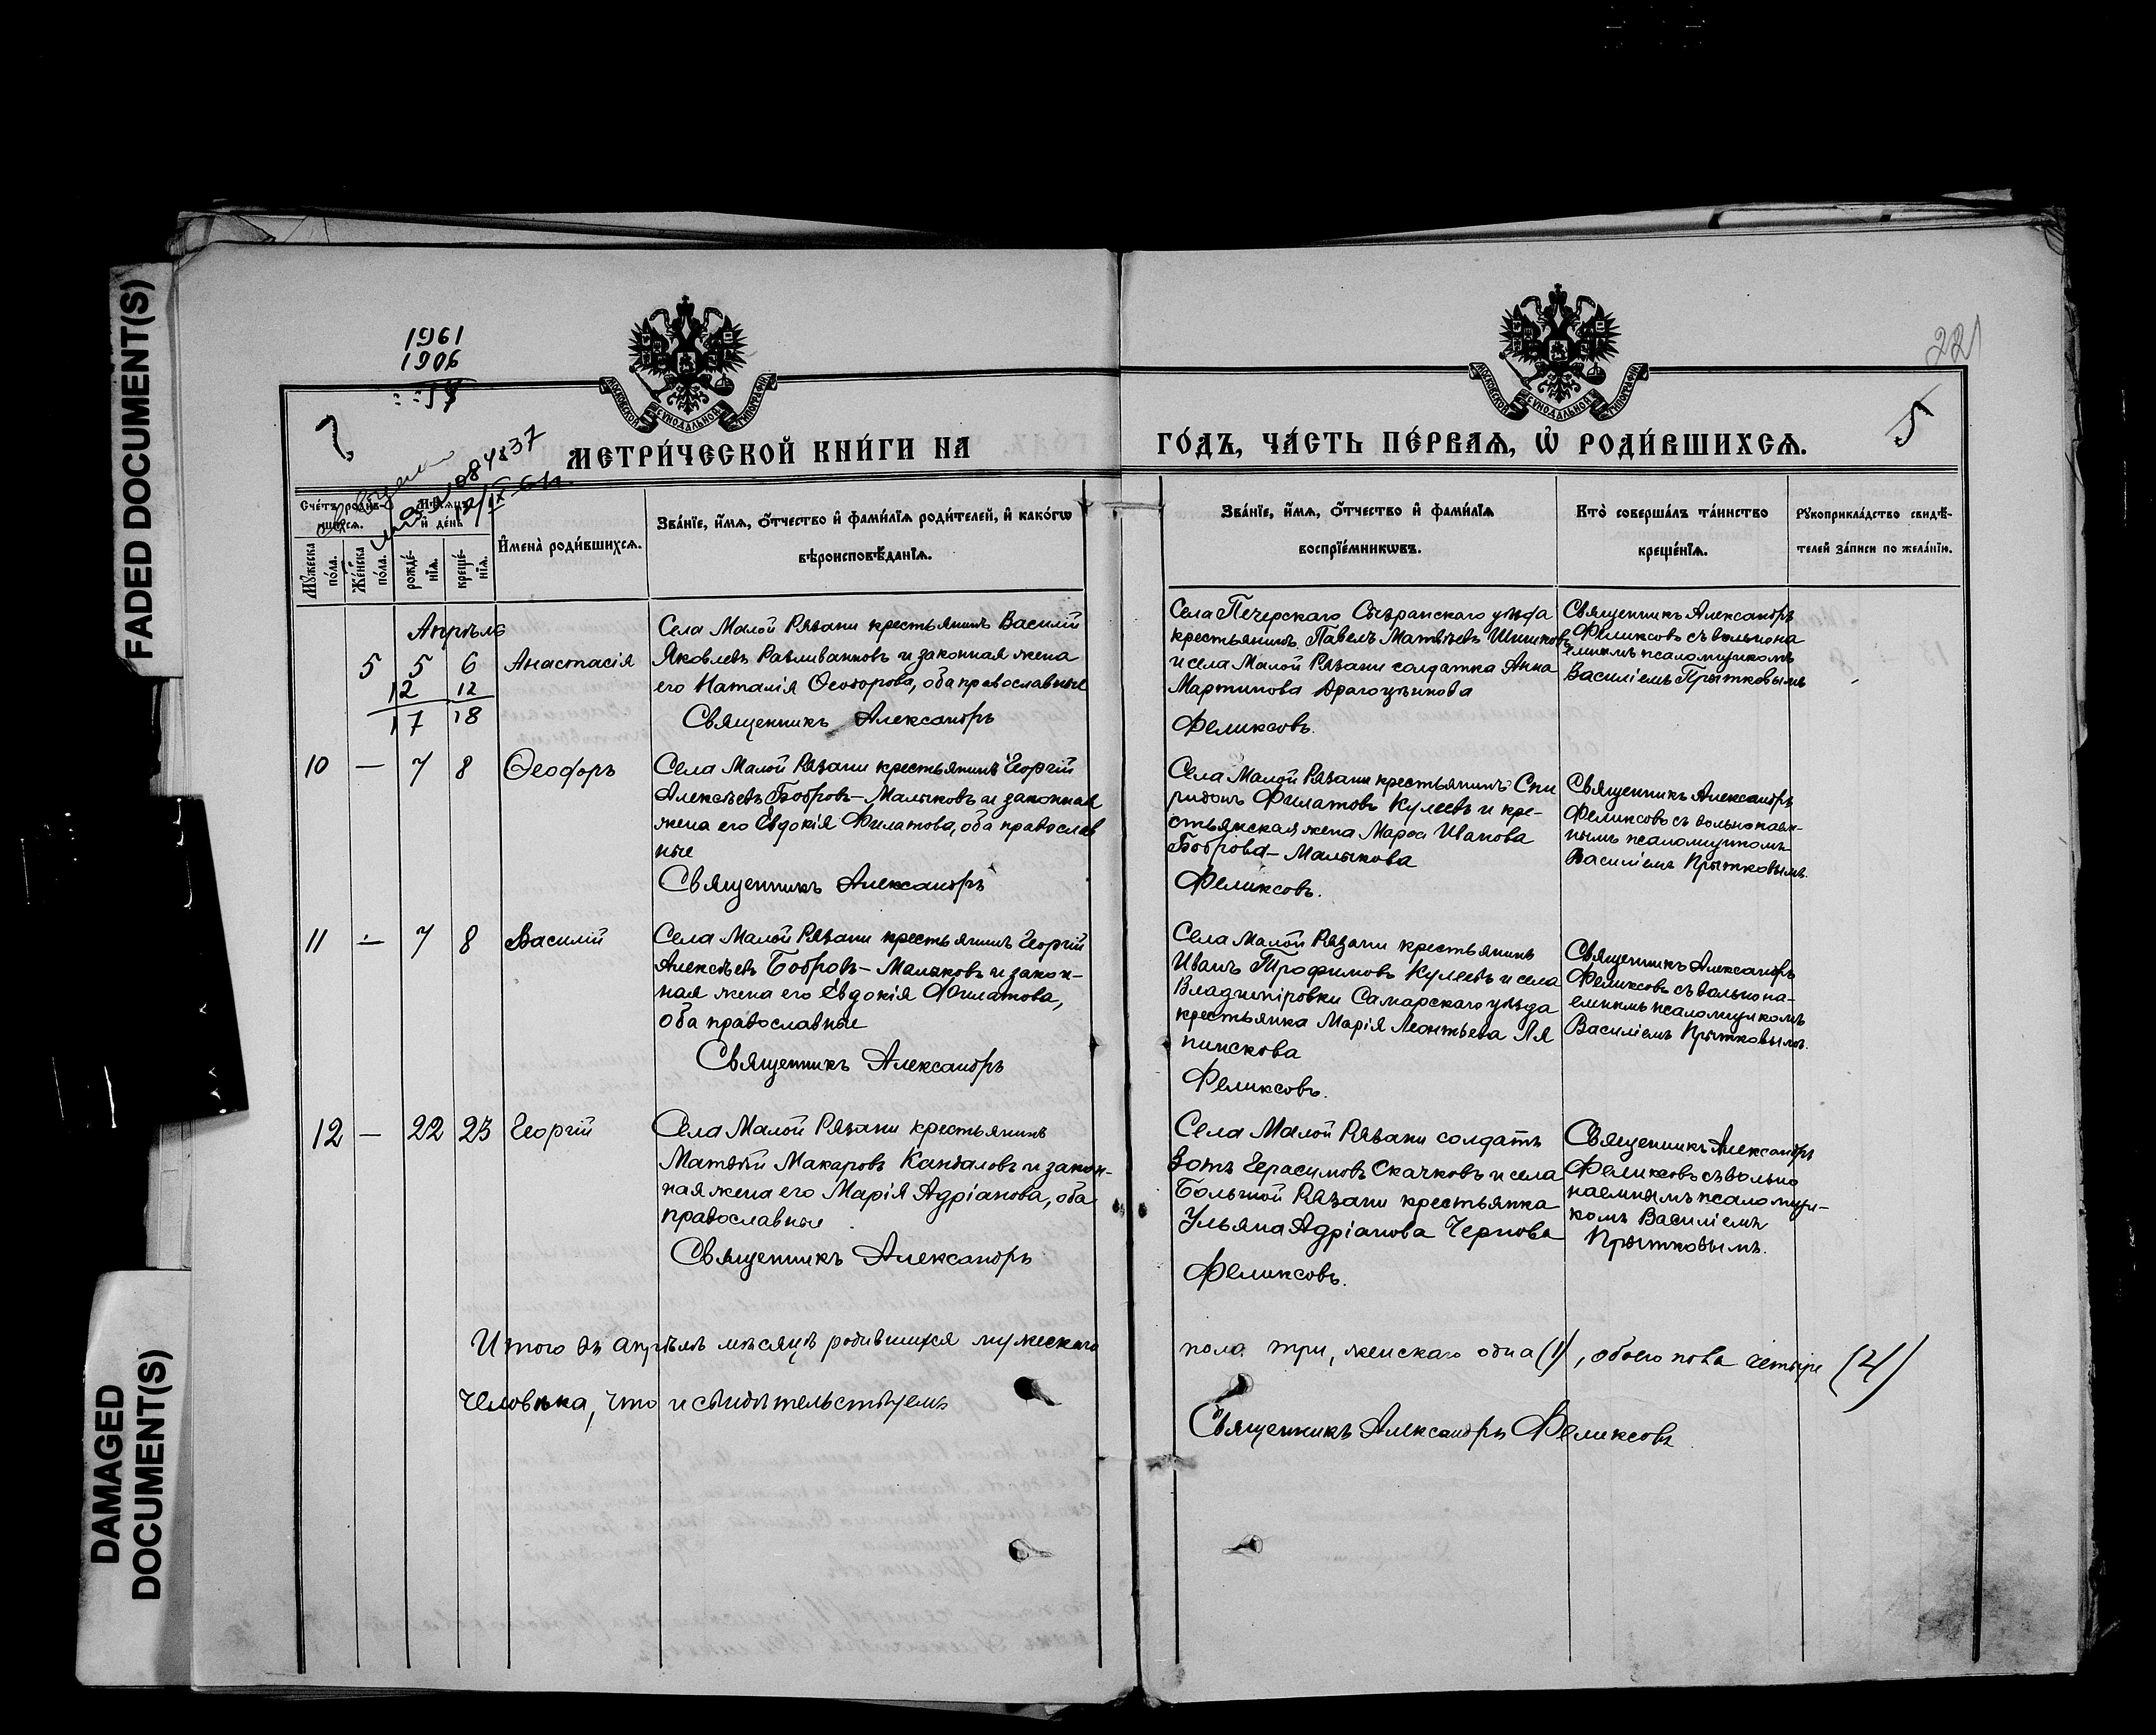 FADED DOCUMENT(S)
DAMAGED
DOCUMENT(S)
1961
1906
221
МОСКОВСКОЙ СУНОДАЛЬНОЙ ТИПОГРАФІИ
МОСКОВСКОЙ СУНОДАЛЬНОЙ ТИПОГРАФІИ
5
МЕТРИ́ЧЕСКОЙ КНИ́ГИ НА
ГО́ДЪ, ЧА́СТЬ ПЕ́РВАѦ, Ѡ҆ РОДИ́ВШИХСѦ.
Сче́тъ роди́в-
шихсѧ.
Мѣ́сѧцъ
и҆ де́нь
Мꙋ́жеска
по́ла.
Же́нска
по́ла.
рожде́-
нїѧ.
креще́-
нїѧ.
И҆мена̀ роди́вшихсѧ.
Зва́нїе, и҆́мѧ, о҆́тчество и҆ фами́лїѧ роди́телей, и҆ како́гѡ
вѣроисповѣ́данїѧ.
Зва́нїе, и҆́мѧ, о҆́тчество и҆ фами́лїѧ
воспрїе́мникѡвъ.
Кто̀ соверша́лъ та́инство
креще́нїѧ.
Рꙋкоприкла́дство свидѣ́-
телей за́писи по жела́нїю.
Апрѣль
5 5 6 Анастасія
12 12
17 18
Села Малой Рязани крестьянинъ Василій
Яковлевъ Разливановъ и законная жена
его Наталія Ѳеодорова, оба православные
Священникъ Александръ
Села Печерскаго Сызранскаго уѣзда
крестьянинъ Павелъ Матвѣевъ Шишковъ
и села Малой Рязани солдатка Анна
Мартинова Драгоцѣнова
Феликсовъ.
Священникъ Александръ
Феликсовъ съ вольнона
емнымъ псаломщикомъ
Василіемъ Прытковымъ
10 — 7 8 Ѳеофоръ
Села Малой Рязани крестьянинъ Георгій
Алексѣевъ Бобровъ-Малыковъ и законная
жена его Евдокія Филатова, оба православ
ные
Священникъ Александръ
Села Малой Рязани крестьянинъ Спи
ридонъ Филатовъ Кулеевъ и кре-
стьянская жена Марѳа Иванова
Боброва-Малыкова
Феликсовъ.
Священникъ Александръ
Феликсовъ съ вольнонаем-
нымъ псаломщикомъ
Василіемъ Прытковымъ.
11 — 7 8 Василій
Села Малой Рязани крестьянинъ Георгій
Алексѣевъ Бобровъ-Малыковъ и закон-
ная жена его Евдокія Филатова,
оба православные
Священникъ Александръ
Села Малой Рязани крестьянинъ
Иванъ Трофимовъ Кулеевъ и села
Владиміровки Самарскаго уѣзда
крестьянка Марія Леонтьева Ля
пинскова
Феликсовъ.
Священникъ Александръ
Феликсовъ съ вольнона-
емнымъ псаломщикомъ
Василіемъ Прытковымъ.
12 — 22 23 Георгій
Села Малой Рязани крестьянинъ
Матвѣй Макаровъ Кандаловъ и закон-
ная жена его Марія Адріанова, оба
православные
Священникъ Александръ
Села Малой Рязани солдатъ
Зотъ Герасимовъ Скачковъ и села
Большой Рязани крестьянка
Ульяна Адріанова Чернова
Феликсовъ.
Священникъ Александръ
Феликсовъ съ вольно
наемнымъ псаломщи-
комъ Василіемъ
Прытковымъ.
Итого въ апрѣлѣ мѣсяцѣ родившихся мужескаго
пола три, женскаго одна (1), обоего пола четыре (4)
человѣка, что и свидѣтельствуемъ
Священникъ Александръ Феликсовъ